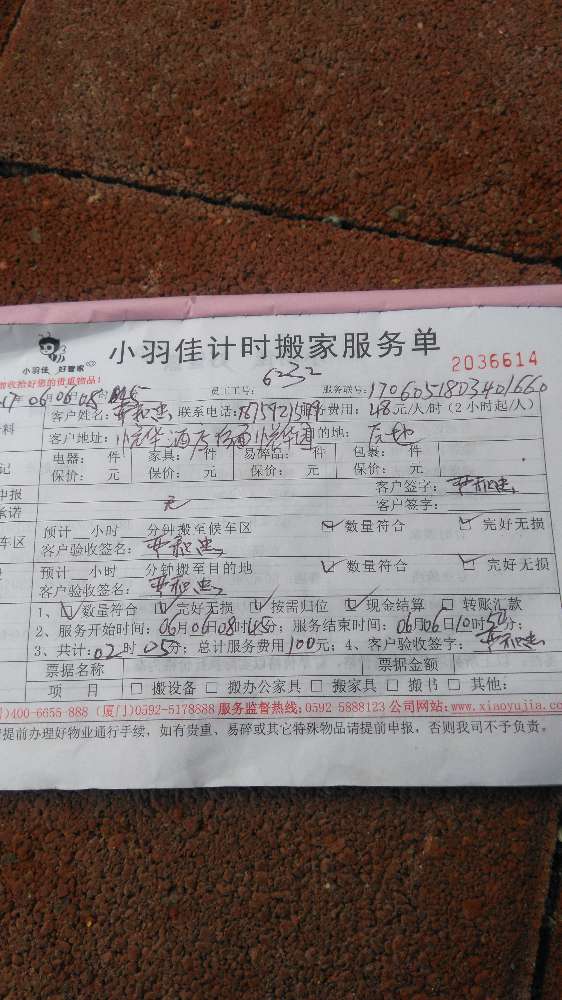 小羽佳 好管家
小羽佳计时搬家服务单 2036614
验收拾好您的贵重物品！
员工工号： 6232 服务联号：1706051803401660
客户姓名： 联系电话： 服务费用：48元/人/时（2小时起/人）
客户地址： 目的地：
电器： 件 家具： 件 易碎品： 件 包装： 件
保价： 元 保价： 元 保价： 元 保价： 元
申报 客户签字：
承诺 元 客户签字：
车区 预计 小时 分钟搬至候车区 数量符合 完好无损
客户验收签名：
预计 小时 分钟搬至目的地 数量符合 完好无损
客户验收签名：
1、 数量符合 完好无损 按需归位 现金结算 转账汇款
2、服务开始时间：06月06日08时45分；服务结束时间：06月06日10时50分；
3、共计：02时05分；总计服务费用100元；4、客户验收签字：
票据名称 票据金额
项 目 搬设备 搬办公家具 搬家具 搬书 其他：
)400-6655-888 (厦门)0592-5178888 服务监督热线：0592 5888123 公司网站：www.xiaoyujia.co
提前办理好物业通行手续，如有贵重、易碎或其它特殊物品请提前申报，否则我司不予负责。